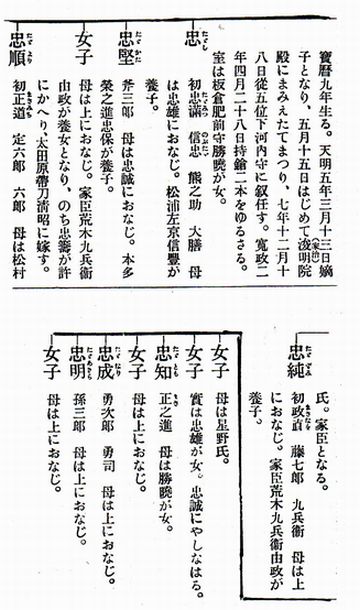 寶曆九年生る。天明五年三月十三日嫡
子となり、五月十五日はじめて浚明院(家治)
殿にまみえたてまつり、七年十二月十
八日從五位下河內守に敍任す。寬政二
年四月二十八日持鎗二本をゆるさる。
室は板倉肥前守勝曉が女。
忠 初忠滿 信忠 のぶたゞ 熊之助 大膳 母
は忠雄におなじ。松浦左京信豐が
養子。
忠堅 たゞかた 斧三郎 母は忠誠におなじ。本多
榮之進忠保が養子。
女子 母は上におなじ。家臣荒木九兵衞
由政が養女となり、のち忠籌が許
にかへり、太田原帶刀淸昭に嫁す。
忠順 たゞより 初正道 まさみち 定六郎 六郎 母は松村
氏。家臣となる。
忠純 たゞずみ 初政直 まさなを 藤七郎 九兵衞 母は上
におなじ。家臣荒木九兵衞由政が
養子。
女子 母は星野氏。
女子 實は忠雄が女。忠誠にやしなはる。
忠知 たゞとも 正之進 まさ 母は勝曉が女。
女子 母は上におなじ。
忠成 たゞなり 勇次郎 勇司 母は上におなじ。
忠明 たゞあきら 孫三郎 母は上におなじ。
女子 母は上におなじ。